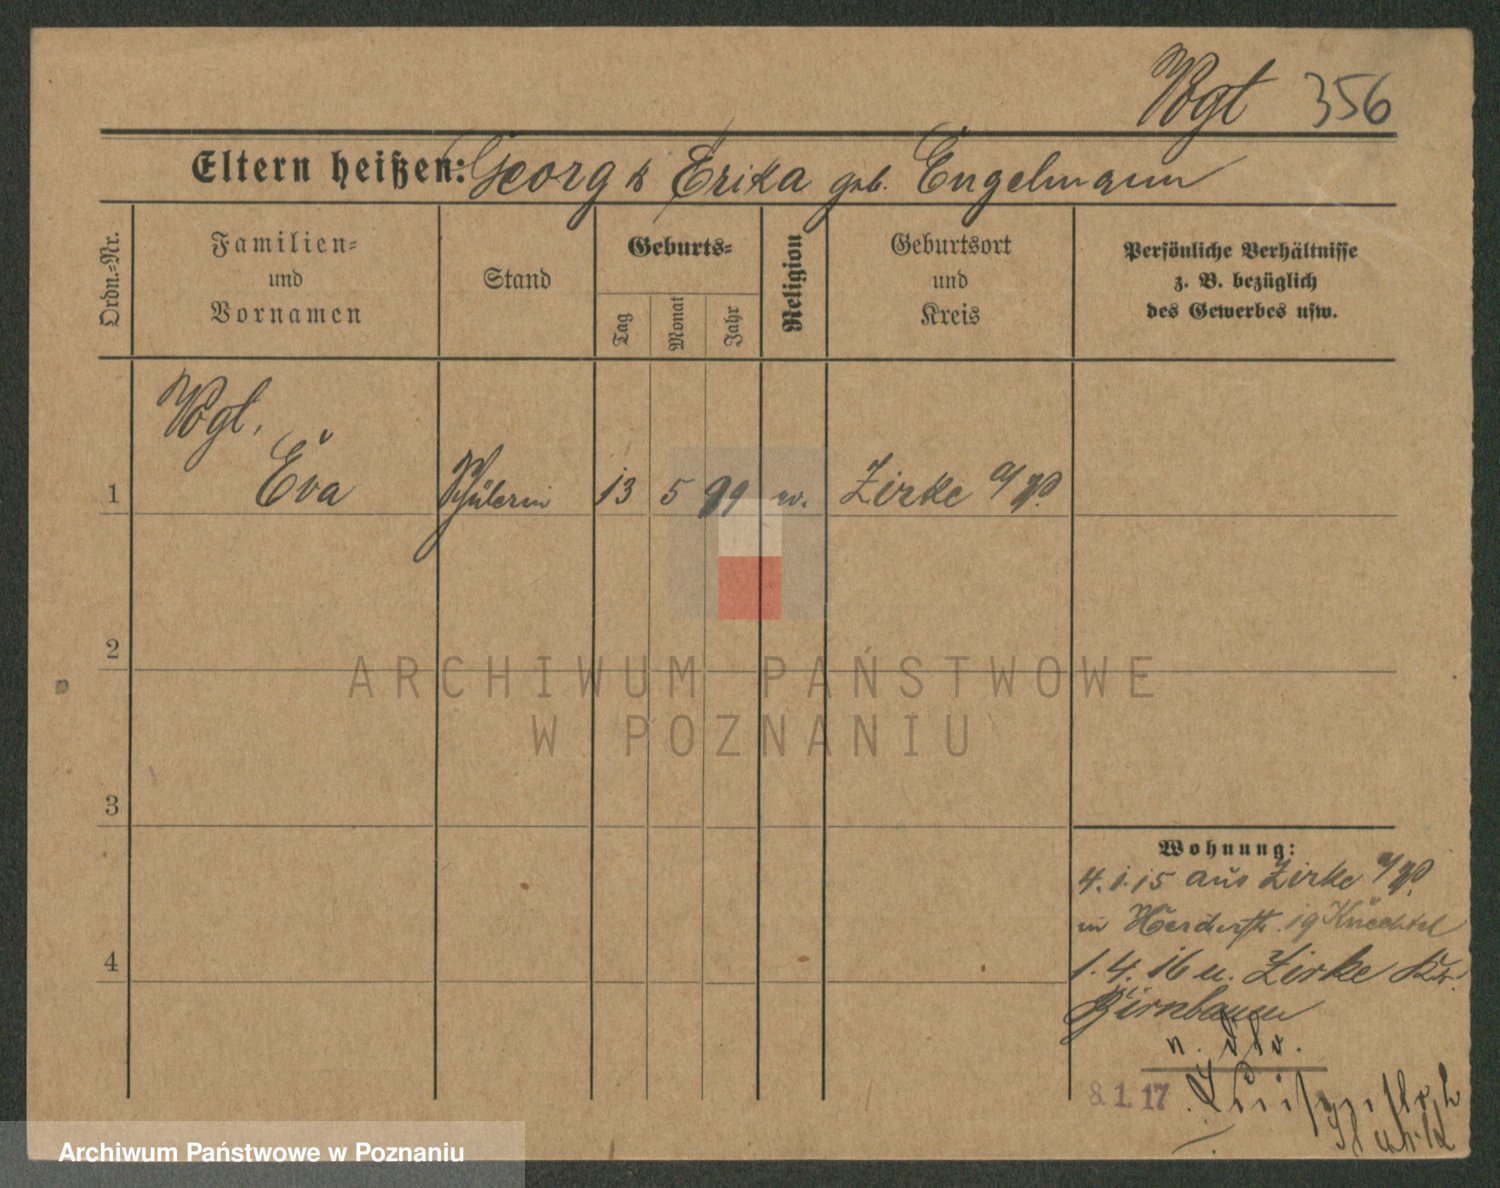 Vogt 356
Eltern heißen: Georg & Erika geb. Engelmann
Ordn.-Nr.
Familien-
und
Vornamen
Stand
Geburts-
Tag
Monat
Jahr
Religion
Geburtsort
und
Kreis
Persönliche Verhältnisse
z. B. bezüglich
des Gewerbes usw.
Vogt,
1 Eva Schülerin 13 5 99 Zirke a/W.
2
ARCHIWUM PAŃSTWOWE
W POZNANIU
3
Wohnung:
4.1.15 aus Zirke a/W.
in Herderstr. 19 Knechtel
4
1.4.16 n. Zirke Kr.
Birnbaum
8.1.17
Archiwum Państwowe w Poznaniu